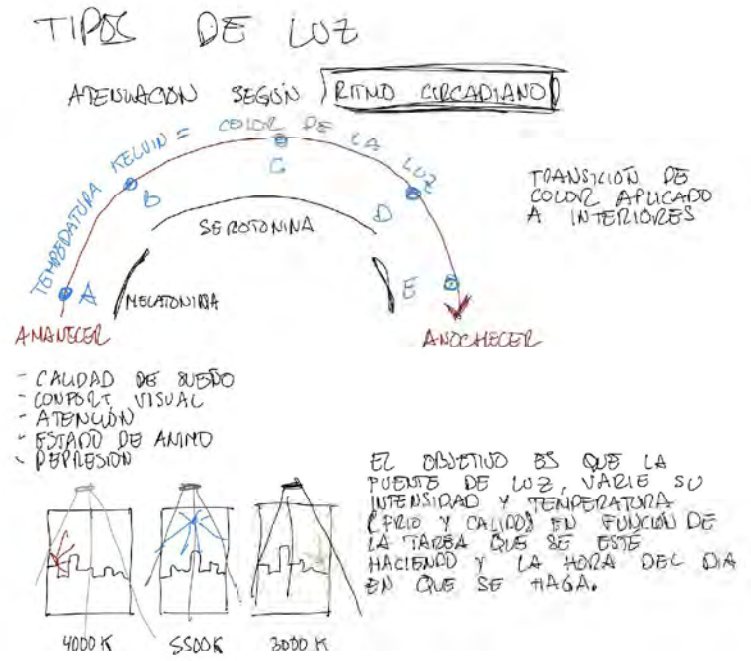 TIPOS DE LUZ
ATENUACIÓN SEGÚN RITMO CIRCADIANO
TEMPERATURA KELVIN = COLOR DE LA LUZ
A
B
C
D
E
SEROTONINA
MELATONINA
AMANECER
ANOCHECER
TRANSICIÓN DE
COLOR APLICADO
A INTERIORES
- CALIDAD DE SUEÑO
- CONFORT VISUAL
- ATENCIÓN
- ESTADO DE ANIMO
- DEPRESIÓN
EL OBJETIVO ES QUE LA
FUENTE DE LUZ, VARIE SU
INTENSIDAD Y TEMPERATURA
(FRIO Y CALIDO) EN FUNCIÓN DE
LA TAREA QUE SE ESTE
HACIENDO Y LA HORA DEL DIA
EN QUE SE HAGA.
4000 K
5500 K
3000 K